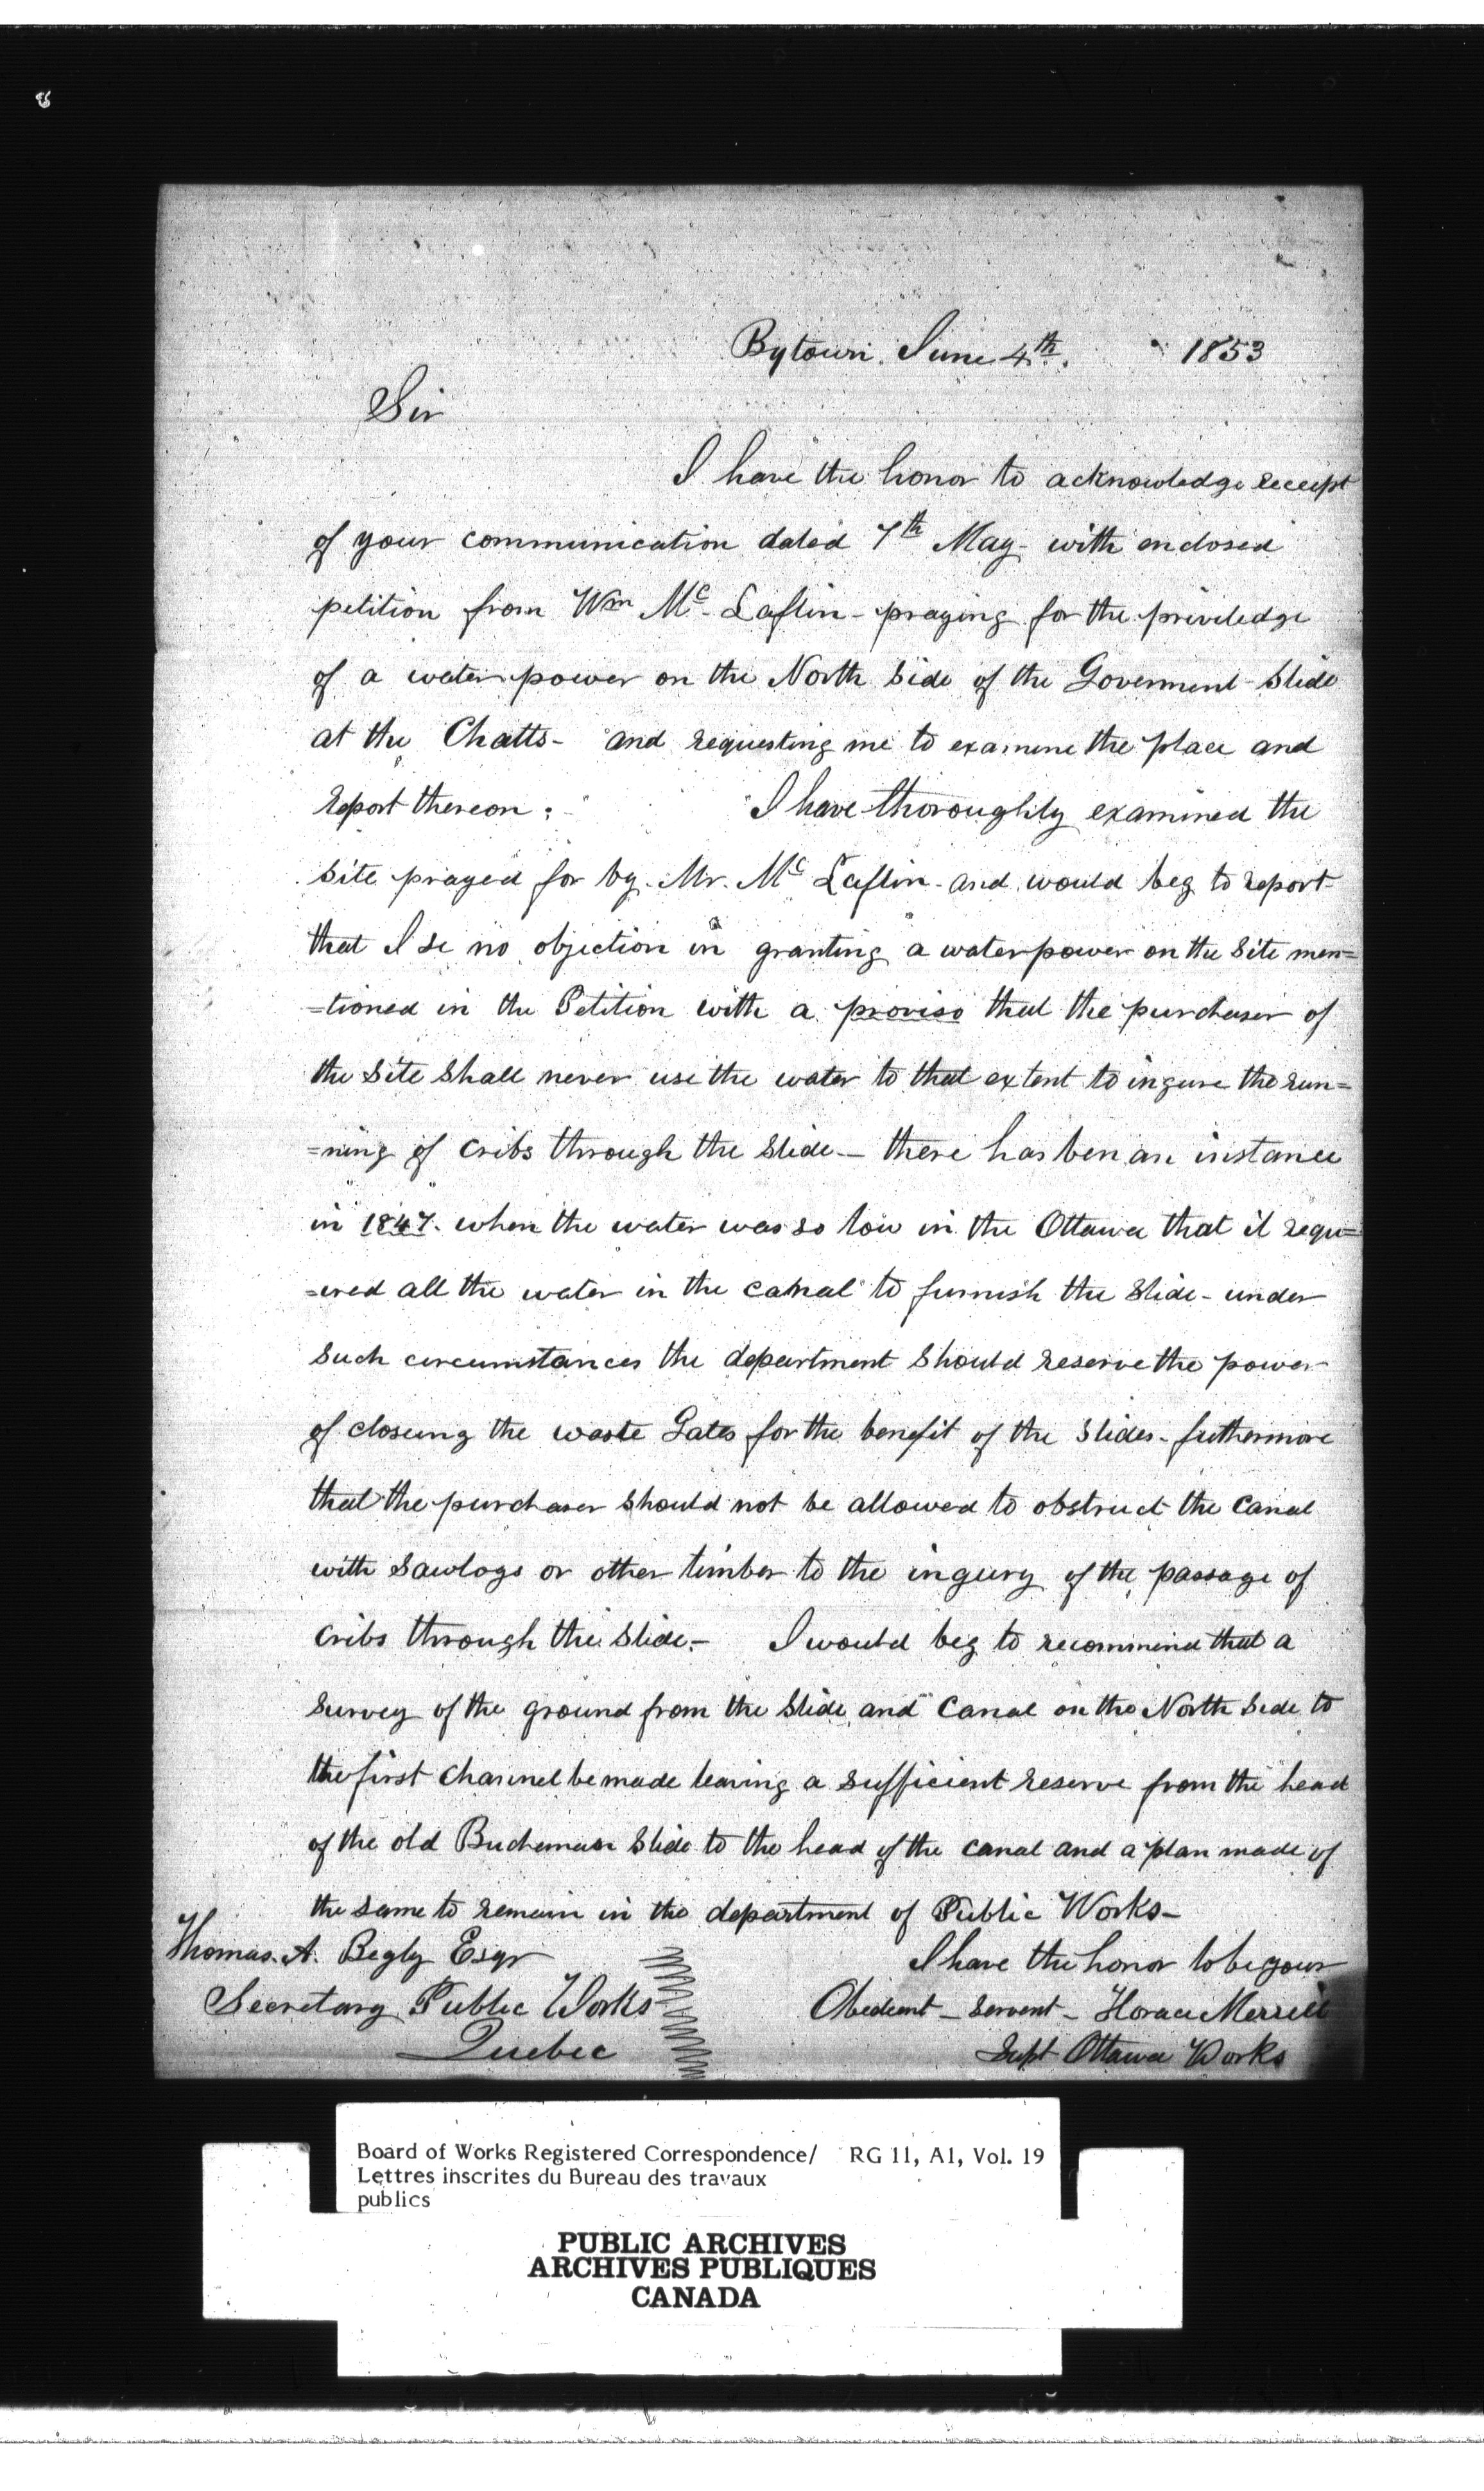 Bytown. June 4th. 1853
Sir
I have the honor to acknowledge receept
of your communication dated 7th May - with enclosed
petition from Wm Mc Laflin - praying for the priviledge
of a water power on the North Side of the Goverment Slide
at the Chatts - and requesting me to examine the place and
report thereon : I have thoroughlily examined the
site prayed for by Mr. Mc Laflin - and would beg to report
that I se no objection in granting a waterpower on the Site men=
=tioned in the Petition with a proviso that the purchaser of
the Site Shall never use the water to that extent to ingure the run=
=ning of Cribs through the Slide - there has ben an instance
in 1847. when the water was so low in the Ottawa that it requ=
=ered all the water in the canal to furnish the Slide - under
such circumstances the department Should reserve the power
of closeing the waste Gates for the benefit of the Slides - futhermore
that the purchaser Should not be allowed to obstruct the Canal
with Sawlogs or other timber to the ingury of the passage of
Cribs through the Slide - I would beg to recommend that a
Survey of the ground from the Slide and Canal on the North Side to
the first Channel be made leaving a Sufficient reserve from the head
of the old Buchanan Slide to the head of the canal and a plan made of
the same to remain in the department of Public Works -
Thomas. A. Begly Esqr
I have the honor to be your
Secretary Public Works
Obedient - Servent - Horace Merrill
Quebec
Supt Ottawa Works
Board of Works Registered Correspondence/ RG 11, A1, Vol. 19
Lettres inscrites du Bureau des travaux
publics
PUBLIC ARCHIVES
ARCHIVES PUBLIQUES
CANADA